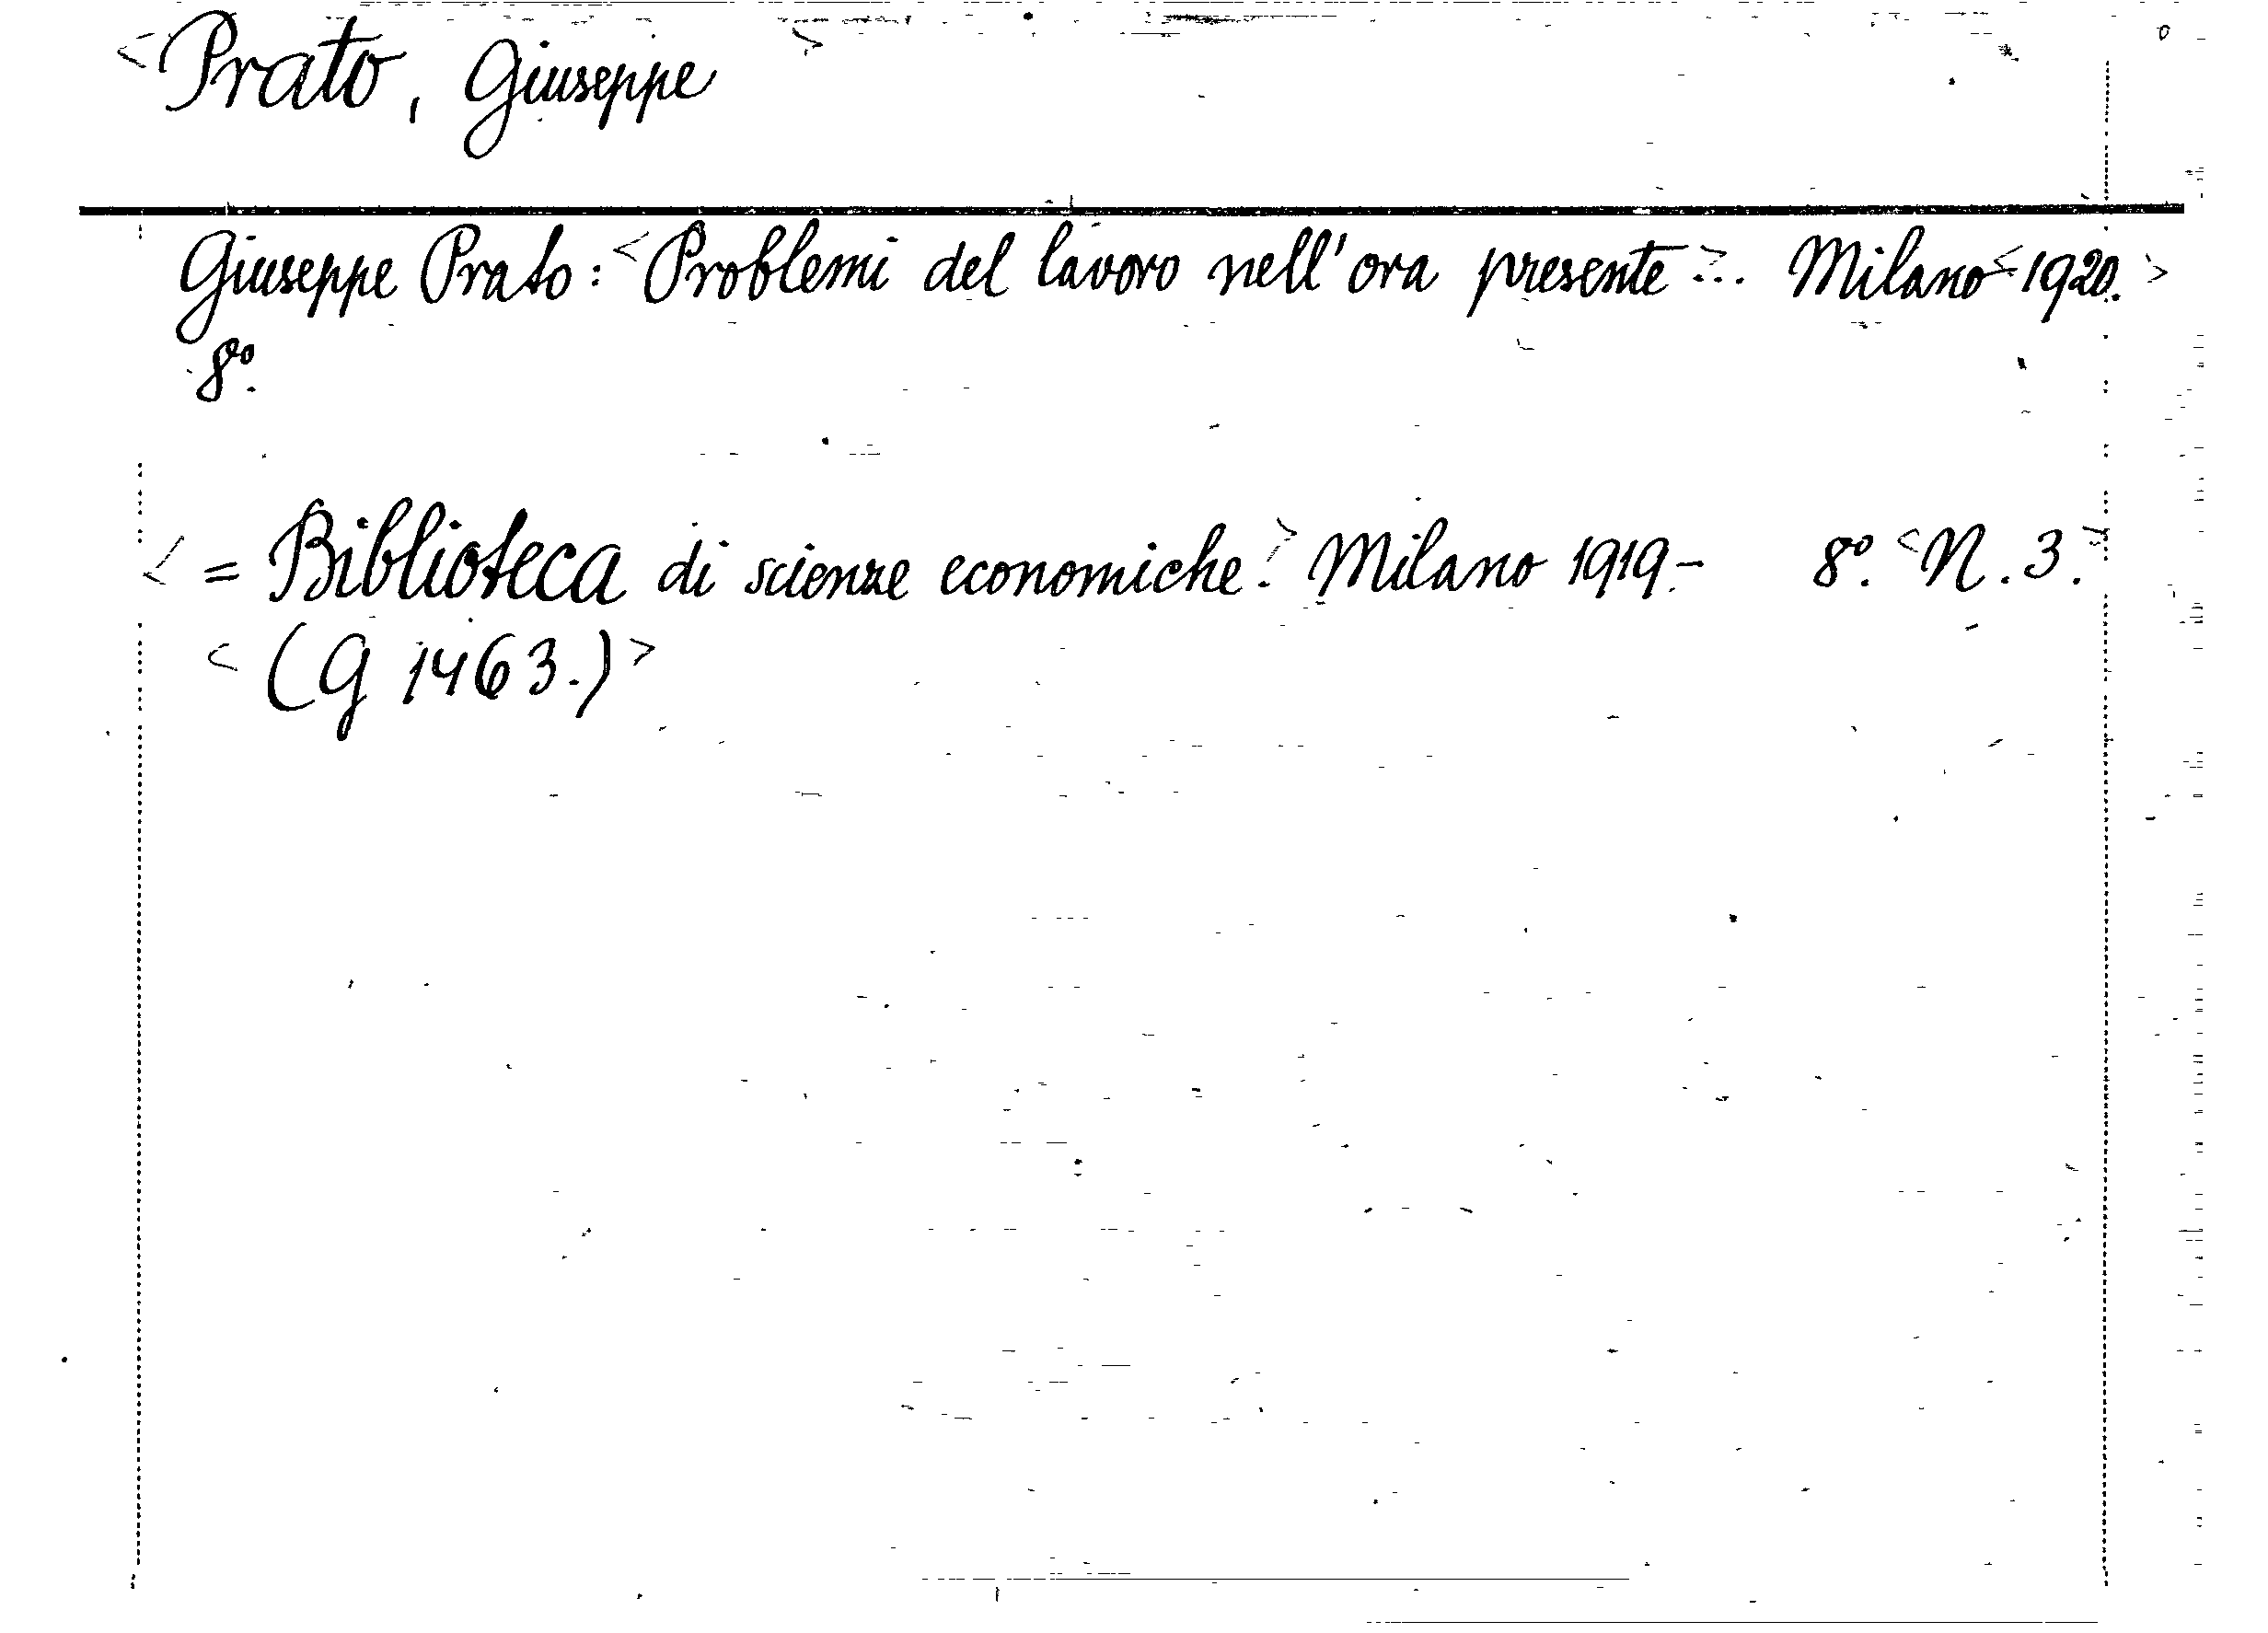 <Prato, Giuseppe>
Giuseppe Prato: <Problemi del lavoro nell'ora presente>... Milano <1920.>
8º.
<= Biblioteca di scienze economiche.> Milano 1919.- 8º. <N. 3.>
<(G 1463.)>